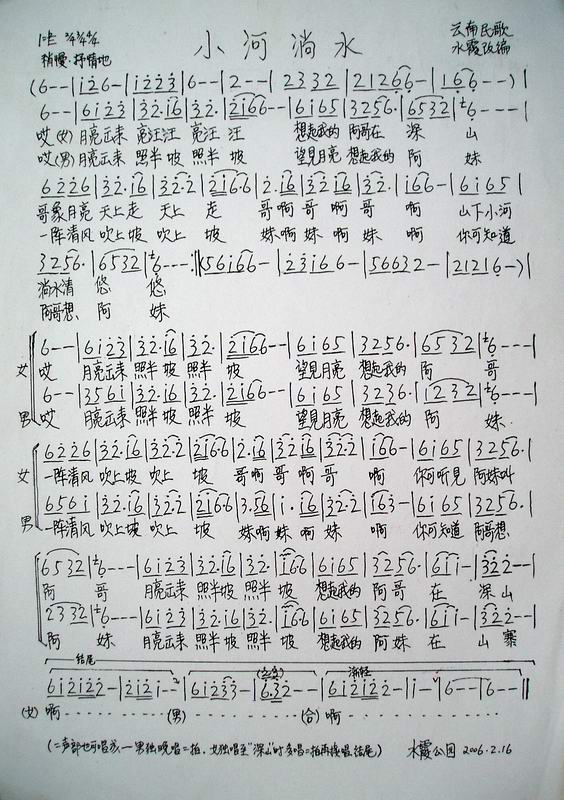 小河淌水
1=E 2/4 3/4 4/4
稍慢·抒情地
云南民歌
水霞改编
(6--|i26-|i223|6--|2--|2332|21266-|166--)|
6--|6i23|32·i6|32·|2i66--|6i65|3256·|6532|6---|
哎(女)月亮出来 亮汪汪 亮汪 汪 想起我的 阿哥在 深 山
哎(男)月亮出来 照半坡 照半 坡 望见月亮 想起我的 阿 妹
6226|32·i6|32·2|2i66·6|2·i6|32i6|32·|i66-|6i65|
哥象月亮 天上走 天上 走 哥啊哥啊哥 啊 山下小河
一阵清风 吹上坡 吹上 坡 妹啊妹啊妹 啊 你可知道
3256·|6532|6---:‖56i66-|23i66-|56632-|21216-)|
淌水清 悠 悠
阿哥想 阿 妹
女 6--|6i23|32·i6|32·|2i66--|6i65|3256·|6532|6---|
哎 月亮出来 照半坡 照半 坡 望见月亮 想起我的 阿 哥
男 6--|356i|32·i6|32·|2i66--|6i65|3236·|i232|6---|
哎 月亮出来 照半坡 照半 坡 望见月亮 想起我的 阿 妹
女 6226|32·i6|32·2|2i66·6|2·i6|32i6|32·2|i66-|6i65|3256·|
一阵清风 吹上坡 吹上 坡 哥啊哥啊哥 啊 你可听见 阿妹叫
男 656i|32·i6|32·2|2i66·6|3·56|i·i6|32·2|i63-|6i65|3256·|
一阵清风 吹上坡 吹上 坡 妹啊妹啊妹 啊 你可知道 阿哥想
6532|6---|6i23|32·i6|32·|i66|6i65|3256·|6ii-|322--|
阿 哥 月亮出来 照半坡 照半 坡 想起我的 阿哥 在 深山
2332|6---|6i23|32·i6|32·|i66|6i65|3256·|6ii-|322--|
阿 妹 月亮出来 照半坡 照半 坡 想起我的 阿妹 在 山寨
结尾 渐轻
6i2i22-|2i2i--|6i233-|6·32--|6i2i22-|i--|6--|6--‖
(女)啊 (男) 啊 (合)啊
水霞公园 2006.2.16